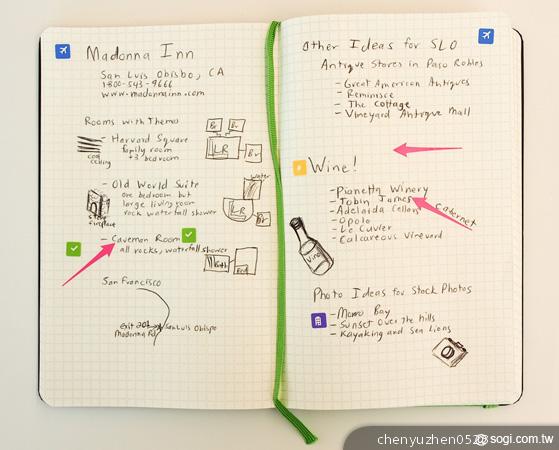 Madonna Inn
San Luis Obisbo, CA
1-800-543-9666
www.madonnainn.com
Rooms with Thema
- Harvard Square
family room
+3 bedroom
cool
ceiling
Br
Br
LR
Br
- Old World Suite
one bedroom but
large living room
rock waterfall shower
stone
fireplace
water
LR
Br
- Caveman Room
all rocks, waterfall shower
Bath
Bed
San Francisco
San Luis Obispo
Madonna Rd
Other Ideas for SLO
Antique Stores in Paso Robles
- Great American Antiques
- Reminisce
- The Cottage
- Vineyard Antique Mall
Wine!
- Pianetta Winery
- Tobin James
- Adelaida Cellars
Cabernet
- Opolo
- Le Cuvier
- Calcareous Vineyard
Vino
Photo Ideas for Stock Photos
- Morro Bay
- Sunset Over the hills
- Kayaking and Sea Lions
sogi.com.tw